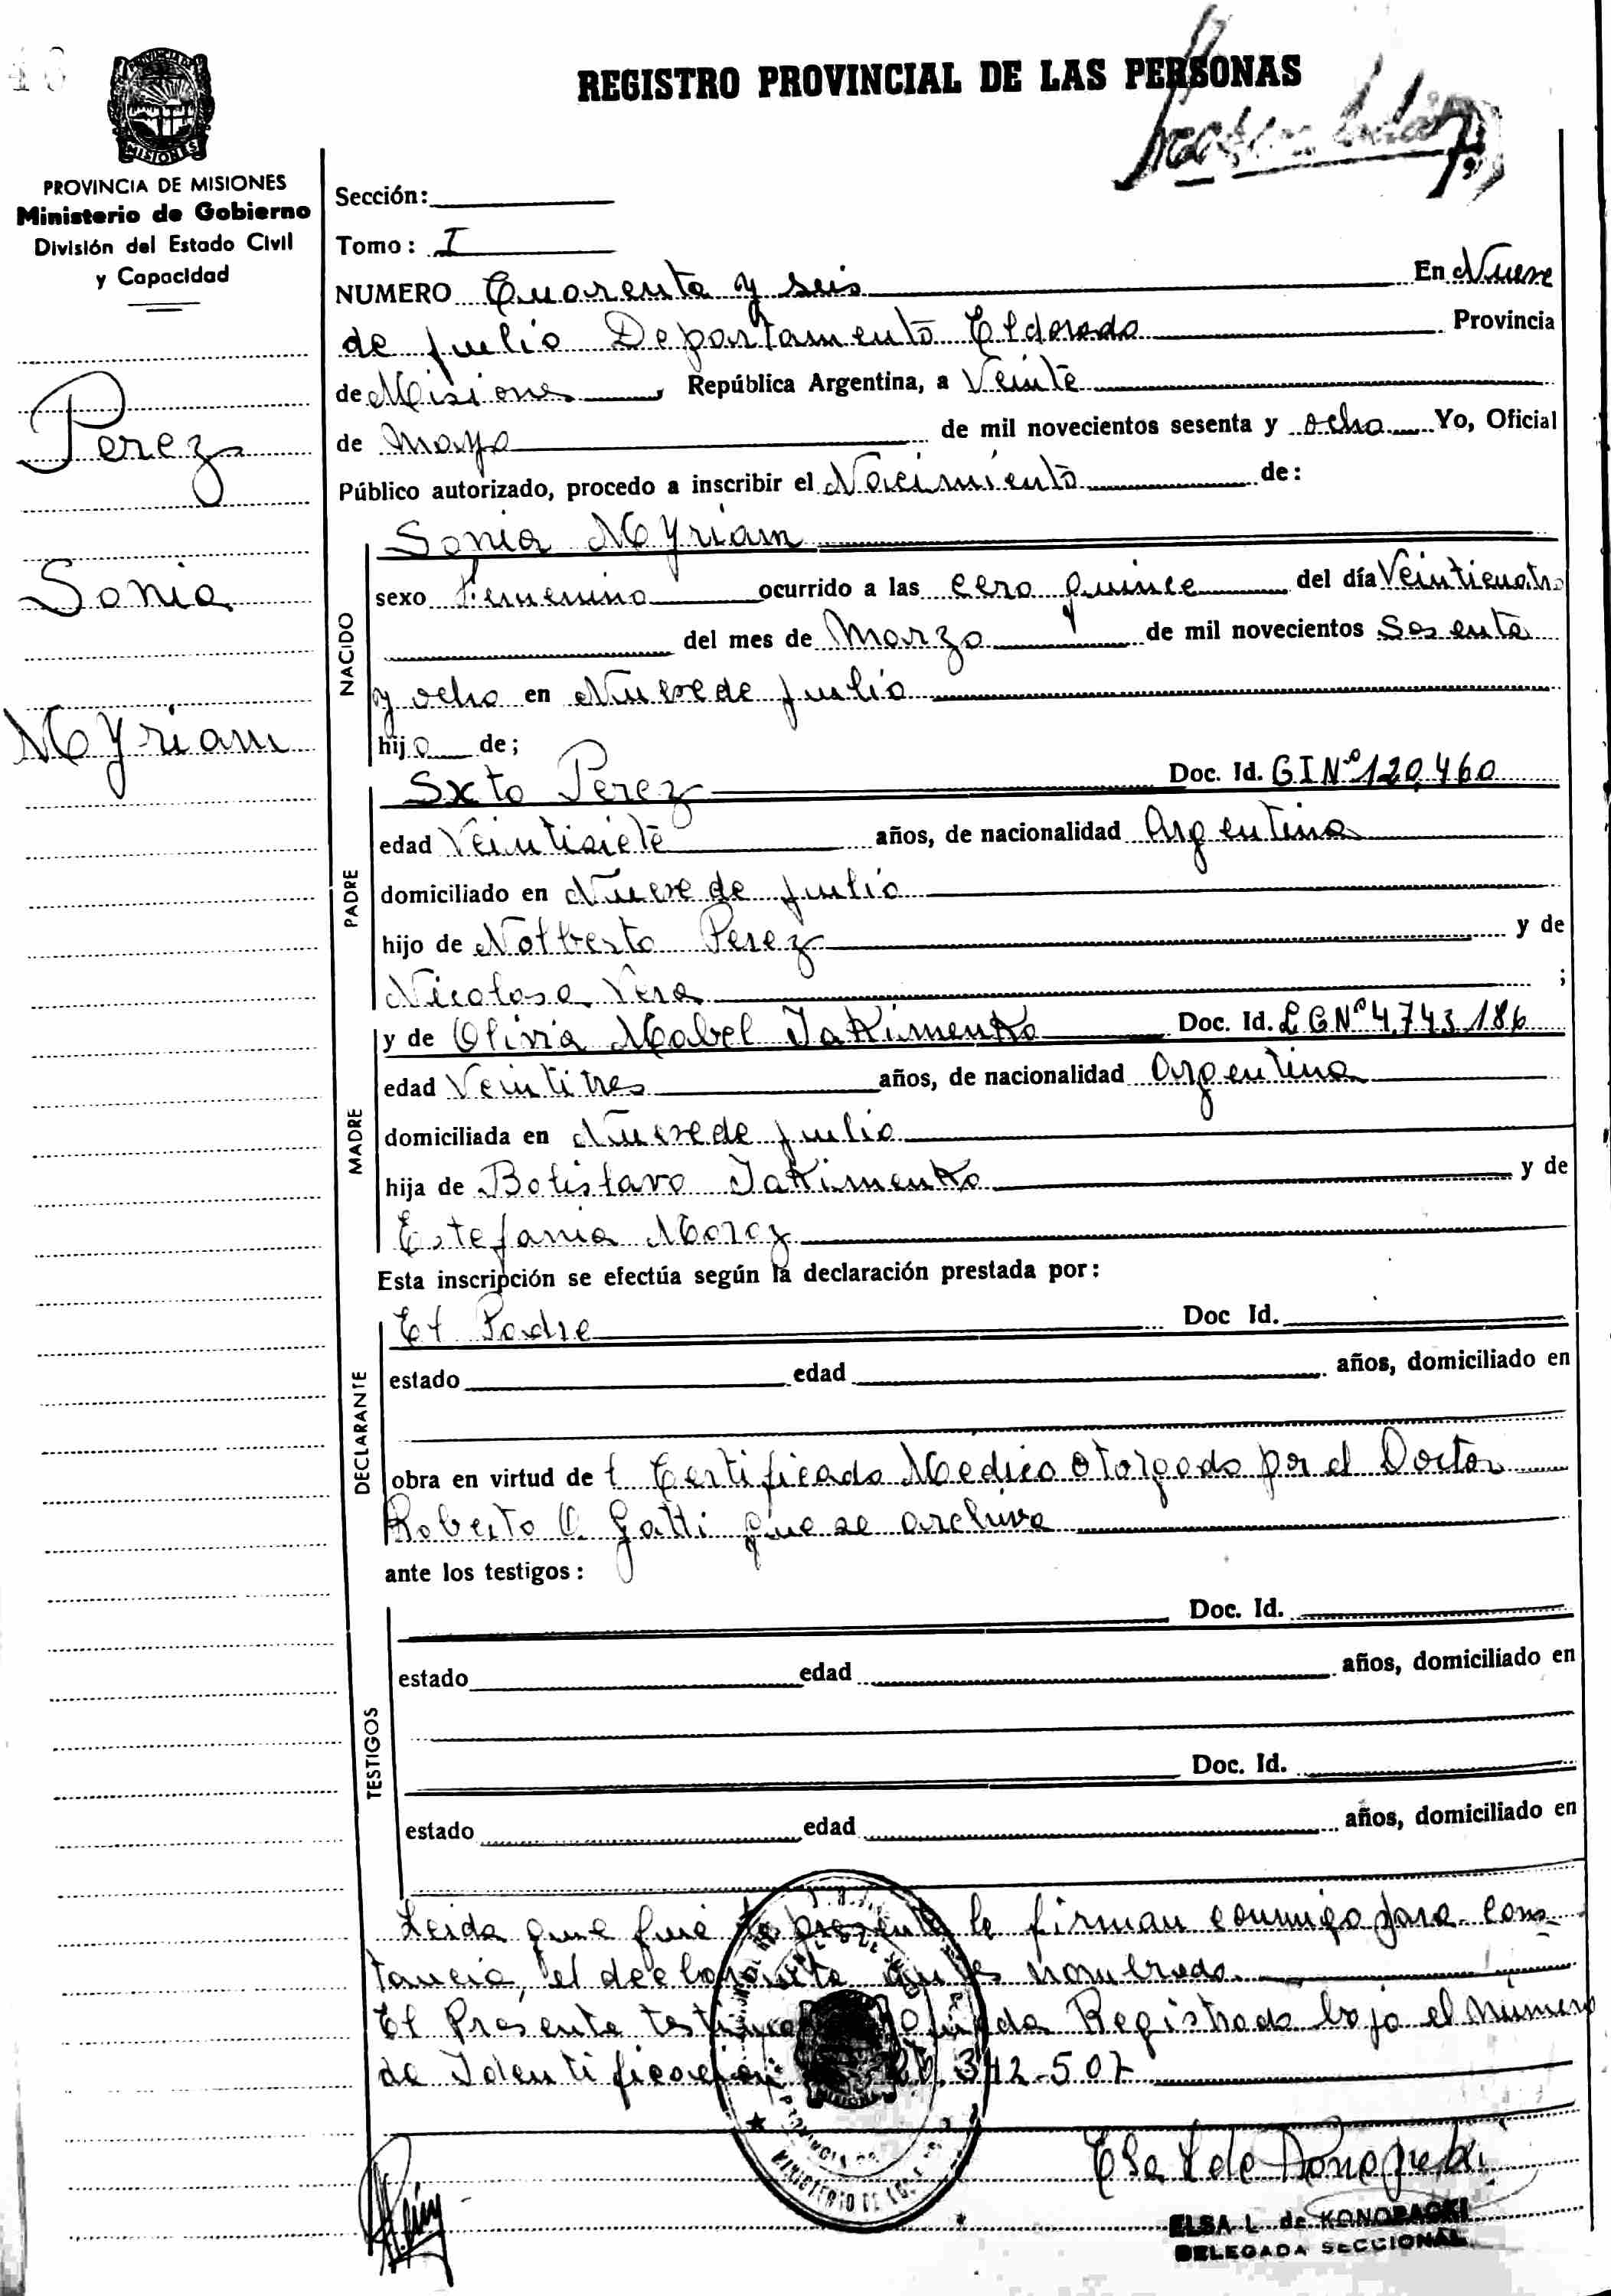 46
REGISTRO PROVINCIAL DE LAS PERSONAS
MISIONES
PROVINCIA DE MISIONES
Ministerio de Gobierno
División del Estado Civil
y Capacidad
Perez
Sonia
Myriam
Sección:
Tomo: I
NUMERO Cuarenta y seis En Nueve
de julio Departamento Eldorado Provincia
de Misiones, República Argentina, a Veinte
de Mayo de mil novecientos sesenta y ocho Yo, Oficial
Público autorizado, procedo a inscribir el Nacimiento de:
Sonia Myriam
NACIDO
sexo Femenino ocurrido a las cero quince del día Veinticuatro
del mes de Marzo de mil novecientos Sesenta
y ocho en Nueve de julio
hija de;
PADRE
Sxto Perez Doc. Id. C I Nº 120,460
edad Veintisiete años, de nacionalidad Argentina
domiciliado en Nueve de julio
hijo de Notberto Perez y de
Nicolasa Vera ;
MADRE
y de Olivia Mabel Jakimenko Doc. Id. L C Nº 4,743,186
edad Veintitres años, de nacionalidad Argentina
domiciliada en Nueve de julio
hija de Bolislavo Jakimenko y de
Estefania Moroz
Esta inscripción se efectúa según la declaración prestada por:
DECLARANTE
El Padre Doc Id.
estado edad años, domiciliado en
obra en virtud del Certificado Medico otorgado por el Doctor
Roberto O. Gatti que se archiva
ante los testigos:
TESTIGOS
Doc. Id.
estado edad años, domiciliado en
Doc. Id.
estado edad años, domiciliado en
Leida que fué la presente la firman conmigo para cons-
tancia, el declarante nombrado.
El Presente Registrado bajo el numero
de Identificacion 20.342-507
PROVINCIA DE
MINISTERIO DE
Elsa L de Konopacki
ELSA L. de KONOPACKI
DELEGADA SECCIONAL